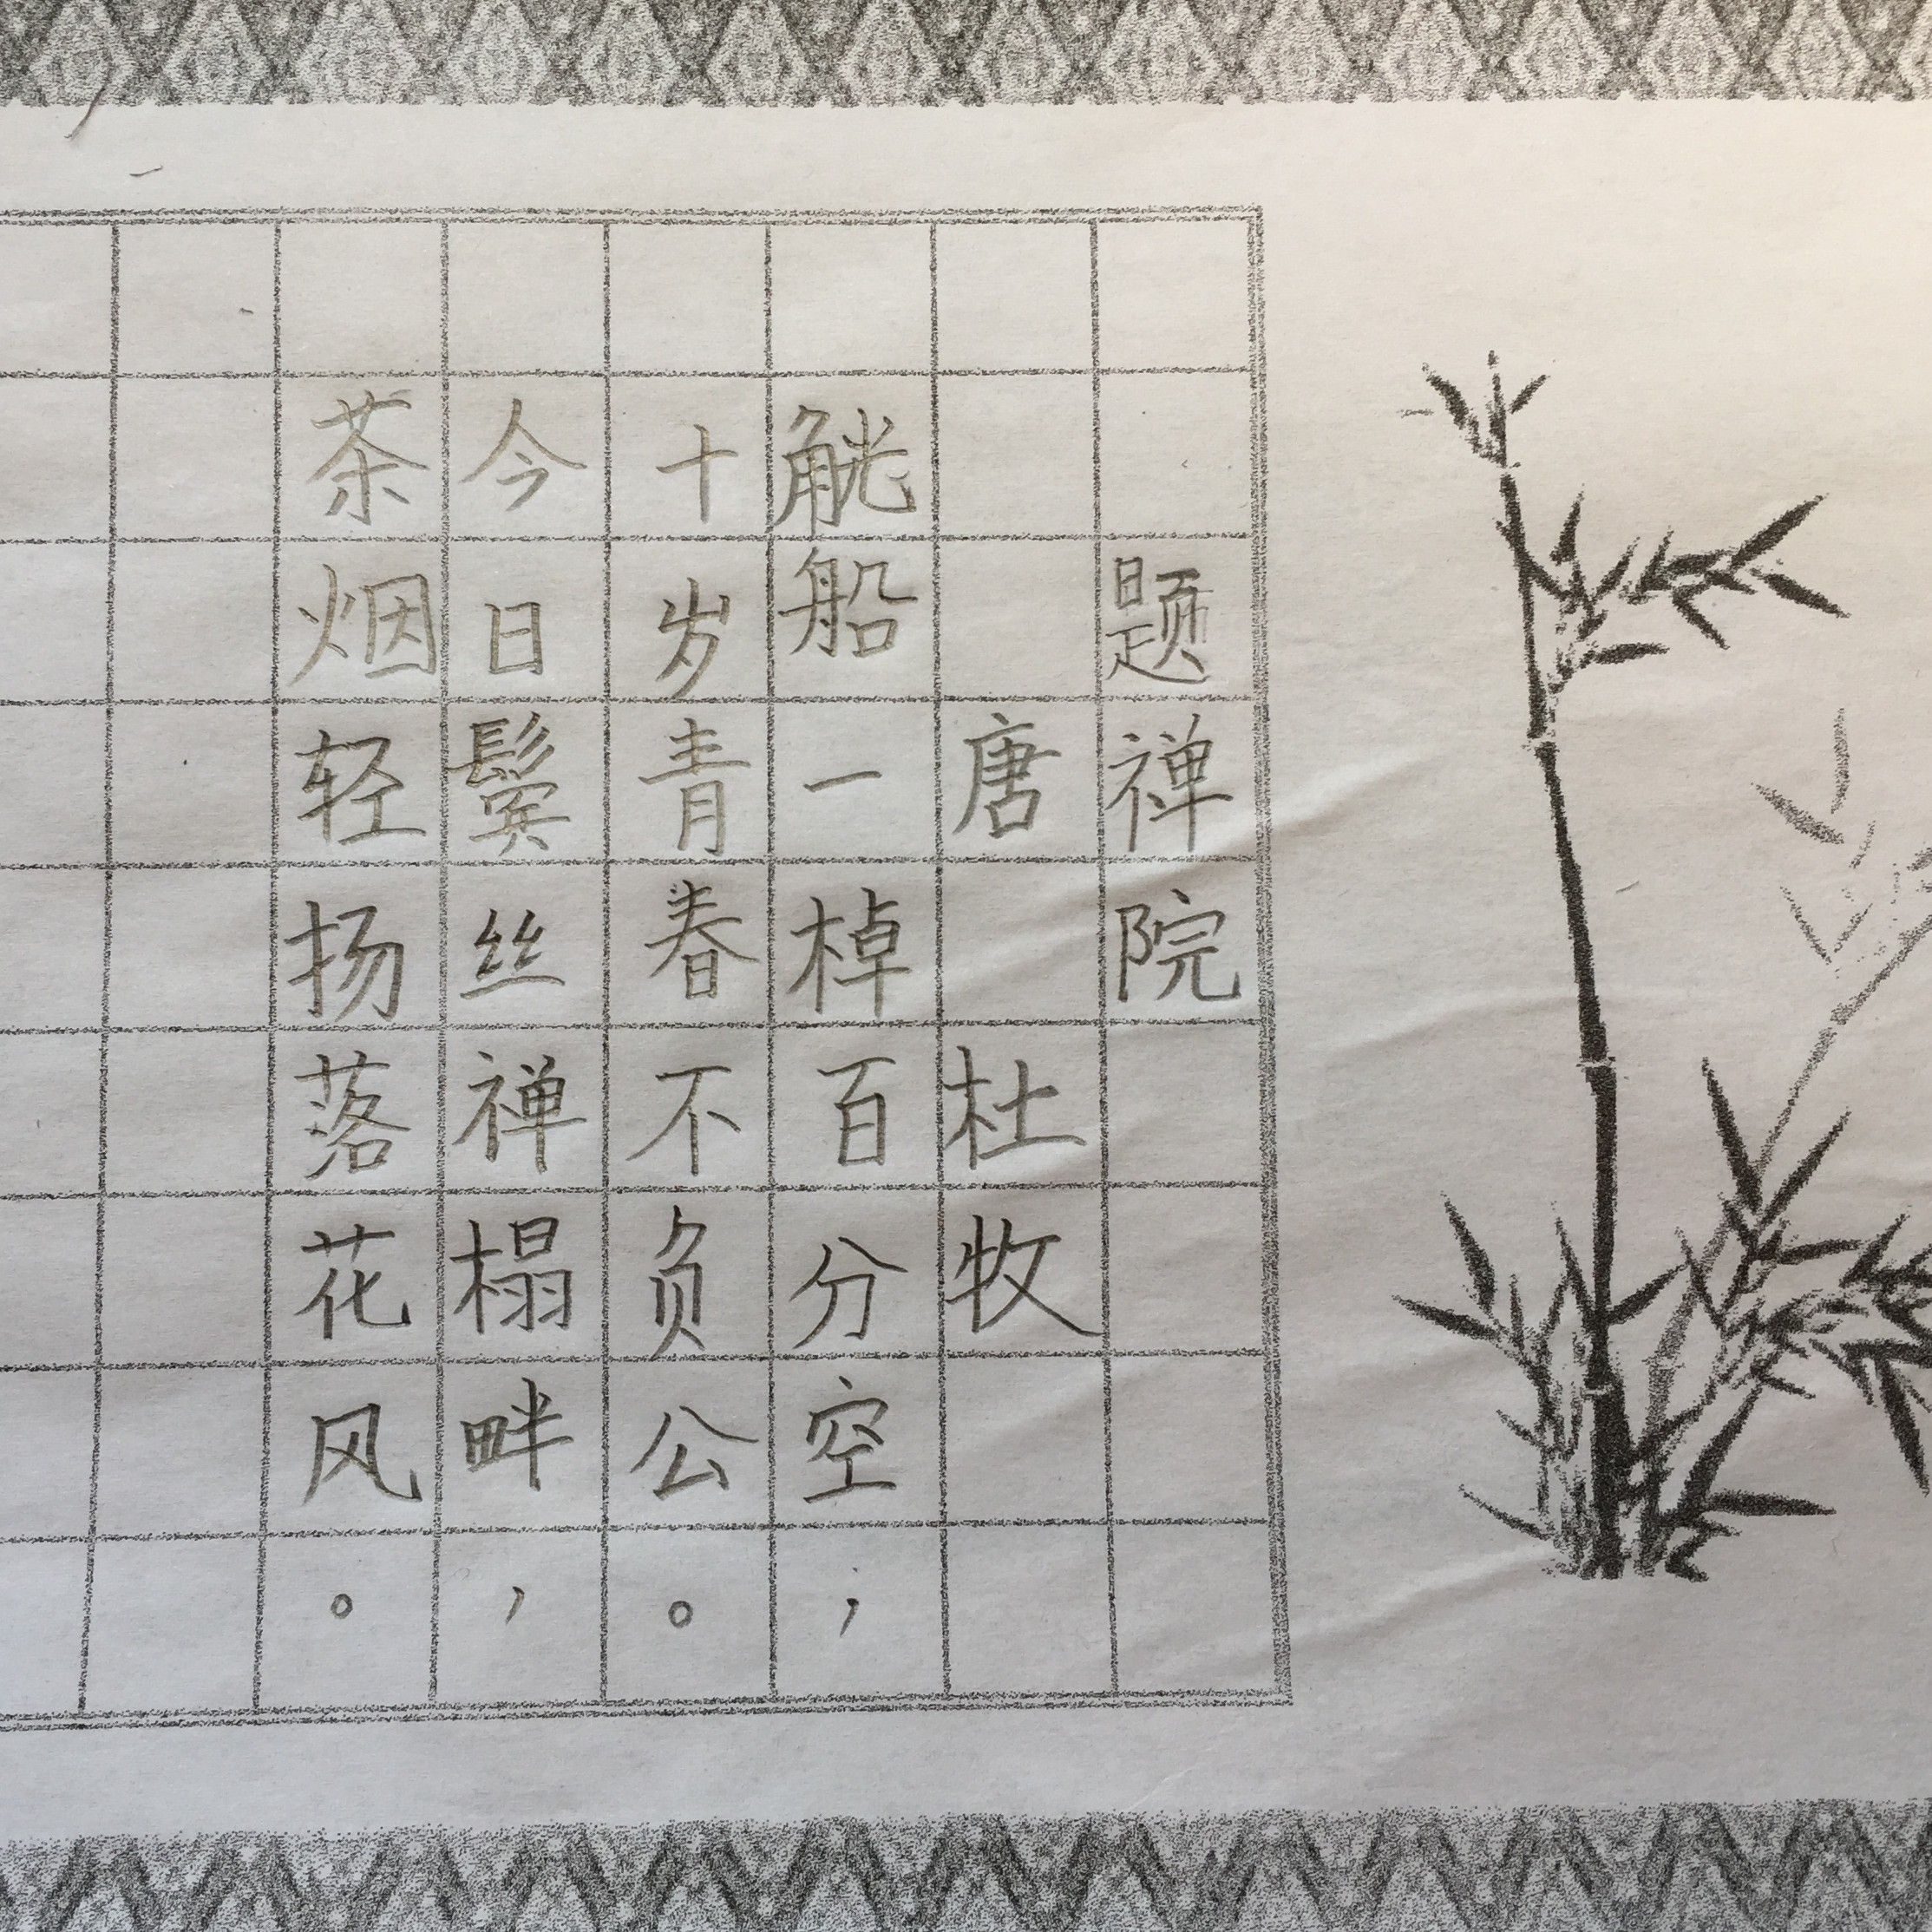 题禅院
唐 杜牧
觥船一棹百分空；
十岁青春不负公。
今日鬓丝禅榻畔，
茶烟轻扬落花风。